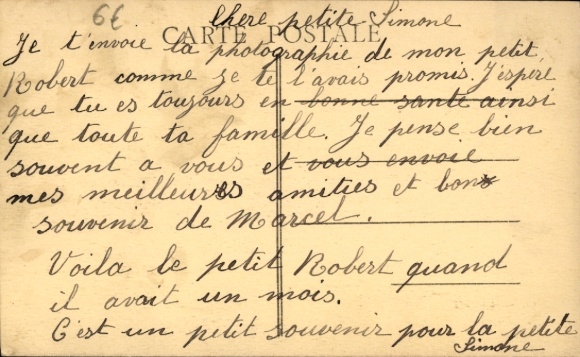 6€
Chere petite Simone
CARTE POSTALE
Je t'envoie la photographie de mon petit
Robert comme je te l'avais promis. J'espere
que tu es toujours en bonne santé ainsi
que toute ta famille. Je pense bien
souvent a vous et vous envoie
mes meilleures amities et bons
souvenir de Marcel.
Voila le petit Robert quand
il avait un mois.
C'est un petit souvenir pour la petite
Simone